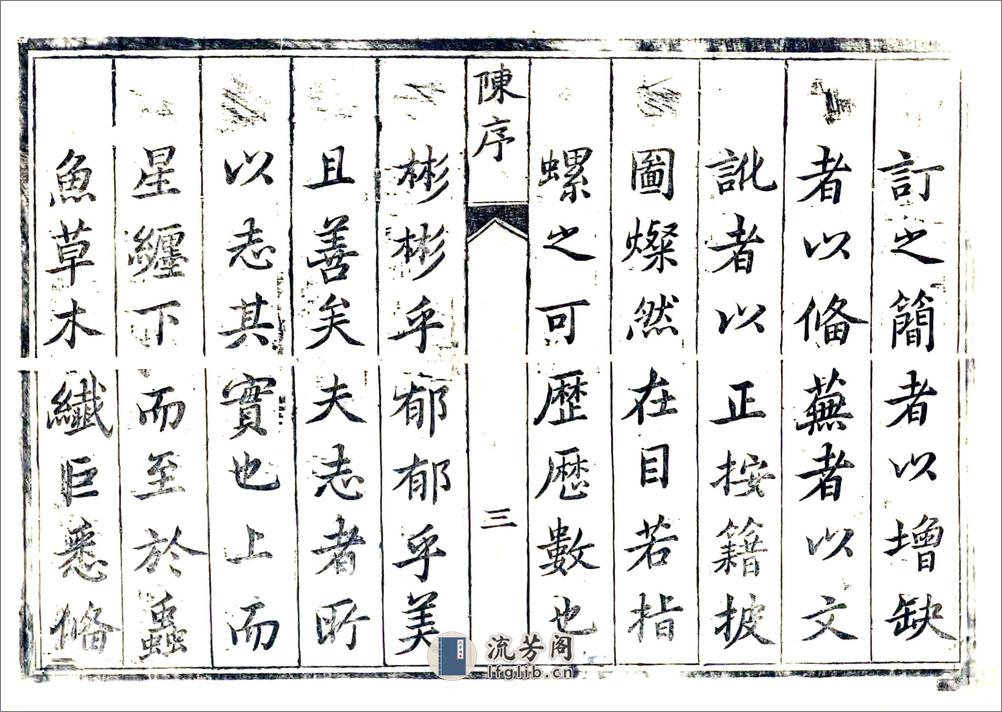 訂之簡者以增缺
者以俻蕪者以文
訛者以正按籍披
圖燦然在目若指
螺之可歴歴數也
陳序
三
彬彬乎郁郁乎美
且善矣夫志者所
以志其實也上而
星纏下而至於蟲
魚草木纖巨悉俻
流芳阁
lfglib.cn